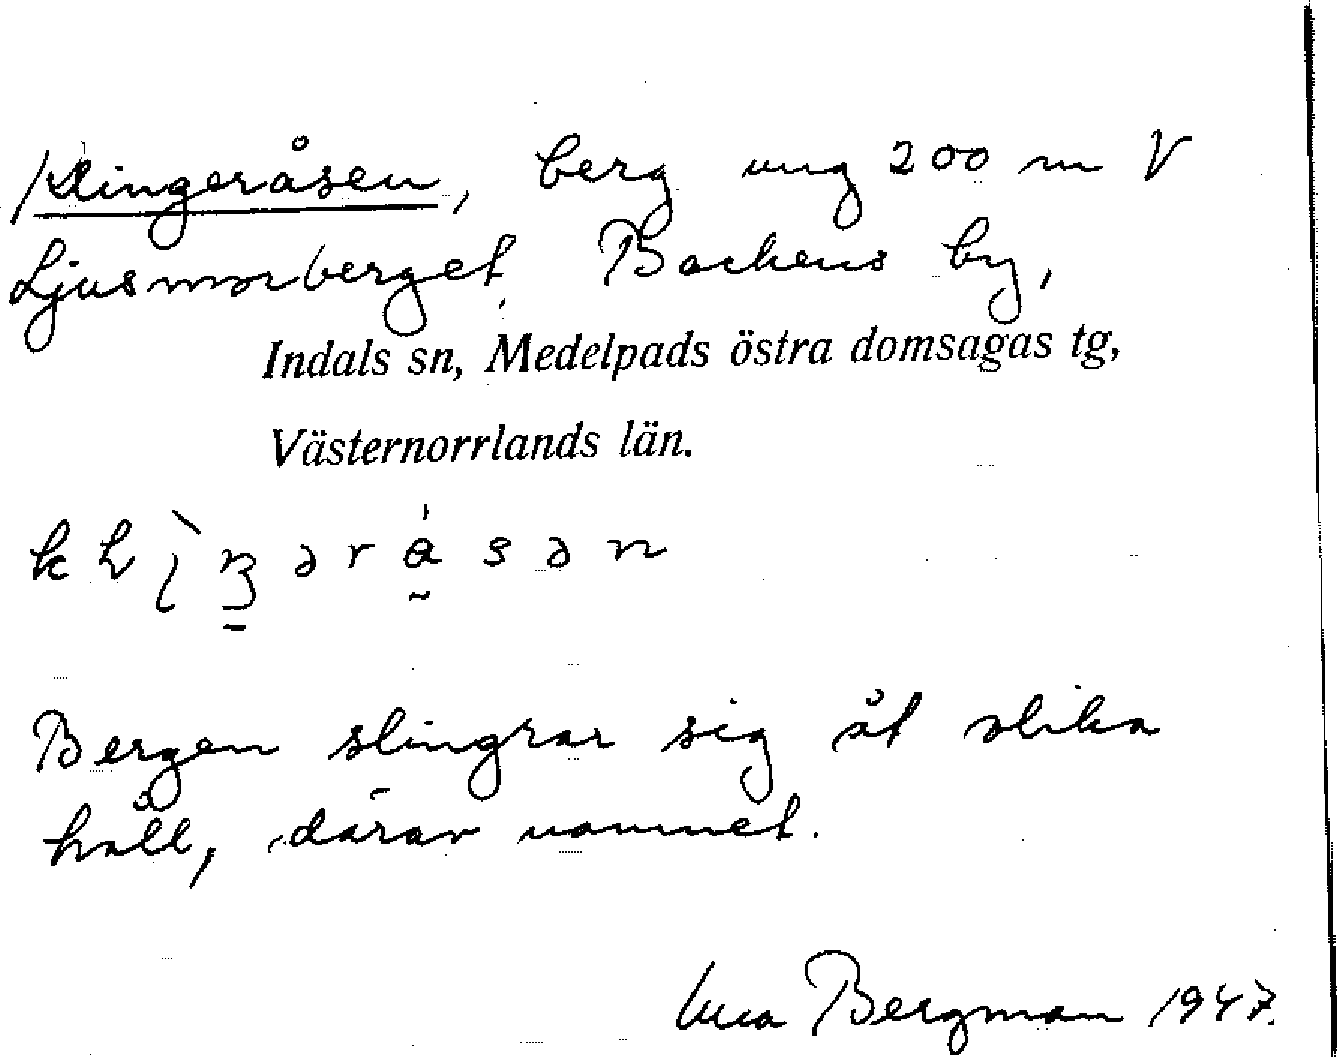 Klingeråsen, berg ung 200 m V
Ljusmorberget, Backens by,
Indals sn, Medelpads östra domsagas tg,
Västernorrlands län.
Bergen slingrar sig åt olika
håll, därav namnet.
Bergman 1947.